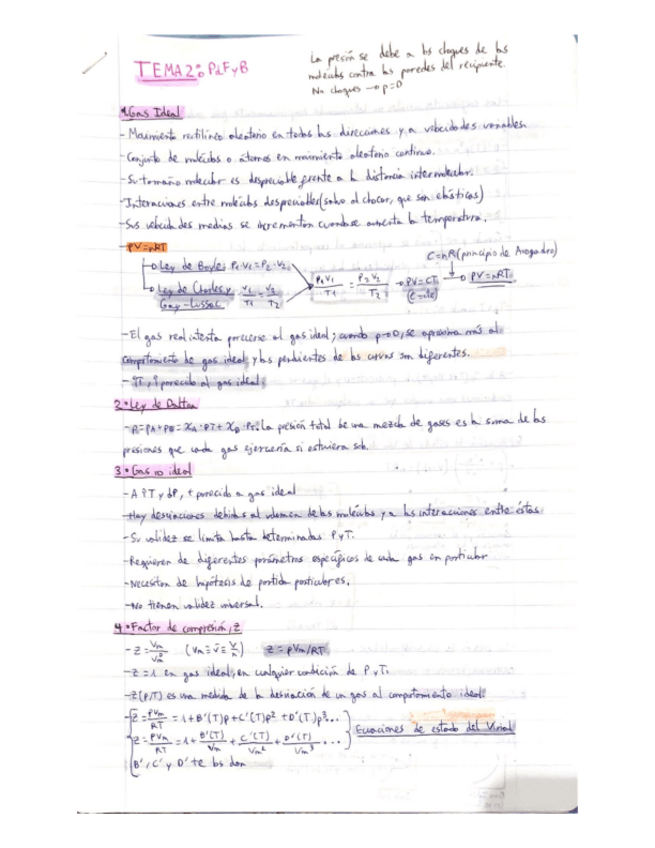 TEMA 2: PdFyB
La presión se debe a los choques de las
moléculas contra las paredes del recipiente.
No choques → p=0
1. Gas Ideal
- Movimiento rectilíneo aleatorio en todas las direcciones y a velocidades variables.
- Conjunto de moléculas o átomos en movimiento aleatorio continuo.
- Su tamaño molecular es despreciable frente a la distancia intermolecular.
- Interacciones entre moléculas despreciables (salvo al chocar, que son elásticas)
- Sus velocidades medias se incrementan cuando se aumenta la temperatura.
- PV=nRT
C=nR (principio de Avogadro)
→ Ley de Boyle: P1·V1=P2·V2
→ Ley de Charles y Gay-Lussac V1/T1 = V2/T2
P1V1/T1 = P2V2/T2 → PV=CT (C=cte) → PV=nRT
- El gas real intenta parecerse al gas ideal; cuando p→0, se aproxima más al
comportamiento de gas ideal y las pendientes de las curvas son diferentes.
- ↑T, ↑ parecido al gas ideal
2. Ley de Dalton
- PT=PA+PB=XA·PT+XB·PT: La presión total de una mezcla de gases es la suma de las
presiones que cada gas ejercería si estuviera solo.
3. Gas no ideal
- A ↑T y ↓P, + parecido a gas ideal
- Hay desviaciones debidas al volumen de las moléculas y a las interacciones entre éstas.
- Su validez se limita hasta determinadas P y T.
- Requieren de diferentes parámetros específicos de cada gas en particular
- Necesitan de hipótesis de partida particulares.
- No tienen validez universal.
4. Factor de compresión, Z
- Z = Vm/Vm° (Vm ≡ v̄ ≡ V/n) Z = pVm/RT
- Z=1 en gas ideal, en cualquier condición de P y T.
- Z(P,T) es una medida de la desviación de un gas al comportamiento ideal.
- Z = pVm/RT = 1+B'(T)p+C'(T)p²+D'(T)p³...
Z = pVm/RT = 1 + B'(T)/Vm + C'(T)/Vm² + D'(T)/Vm³ ...
Ecuaciones de estado del Virial
B', C' y D' te los dan